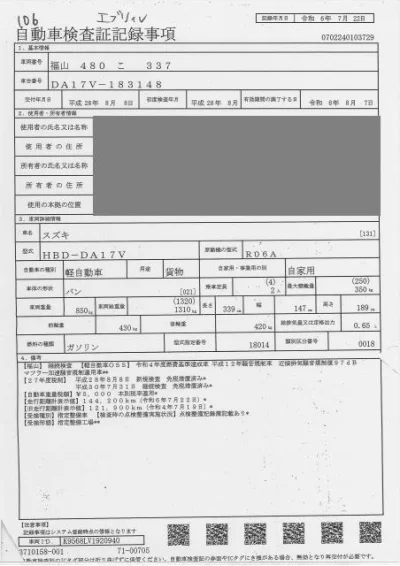 106 エブリィ
記録年月日 令和 6年 7月 22日
自動車検査証記録事項
0702240103729
1. 基本情報
車両番号 福山 480 こ 337
車台番号 DA17V-183148
交付年月日 平成 28年 8月 8日 初度検査年月 平成 28年 8月 有効期間の満了する日 令和 8年 8月 7日
2. 使用者・所有者情報
使用者の氏名又は名称
使用者の住所
所有者の氏名又は名称
所有者の住所
使用の本拠の位置
3. 車両詳細情報
車名 スズキ [131]
型式 HBD-DA17V 原動機の型式 R06A
自動車の種別 軽自動車 用途 貨物 自家用・事業用の別 自家用
車体の形状 バン [021] 乗車定員 (4) 2人 最大積載量 (250) 350kg
車両重量 850kg 車両総重量 (1320) 1310kg 長さ 339cm 幅 147cm 高さ 189cm
前軸重 430kg 後軸重 420kg 総排気量又は定格出力 0.65L
燃料の種類 ガソリン 型式指定番号 18014 類別区分番号 0018
4. 備考
【福山】 継続検査 【軽自動車OSS】 令和4年度燃費基準達成車 平成12年騒音規制車 近接排気騒音規制値97dB
マフラー加速騒音規制適用車**
平成28年8月8日 新規検査 免税措置済み*
平成30年7月31日 継続検査 免税措置済み*
【自動車重量税額】¥5,000 本則税率適用*
【走行距離計表示値】144,200km（令和6年7月22日）*
【旧走行距離計表示値】121,900km（令和4年7月19日）*
【受検種別】指定整備車 【検査時の点検整備実施状況】点検整備記録簿記載あり*
【受検形態】指定整備工場**
【注意事項】
記録事項はシステム登録時点の情報となります
車両ID. K9568LV1920940
3710158-001 71-00705